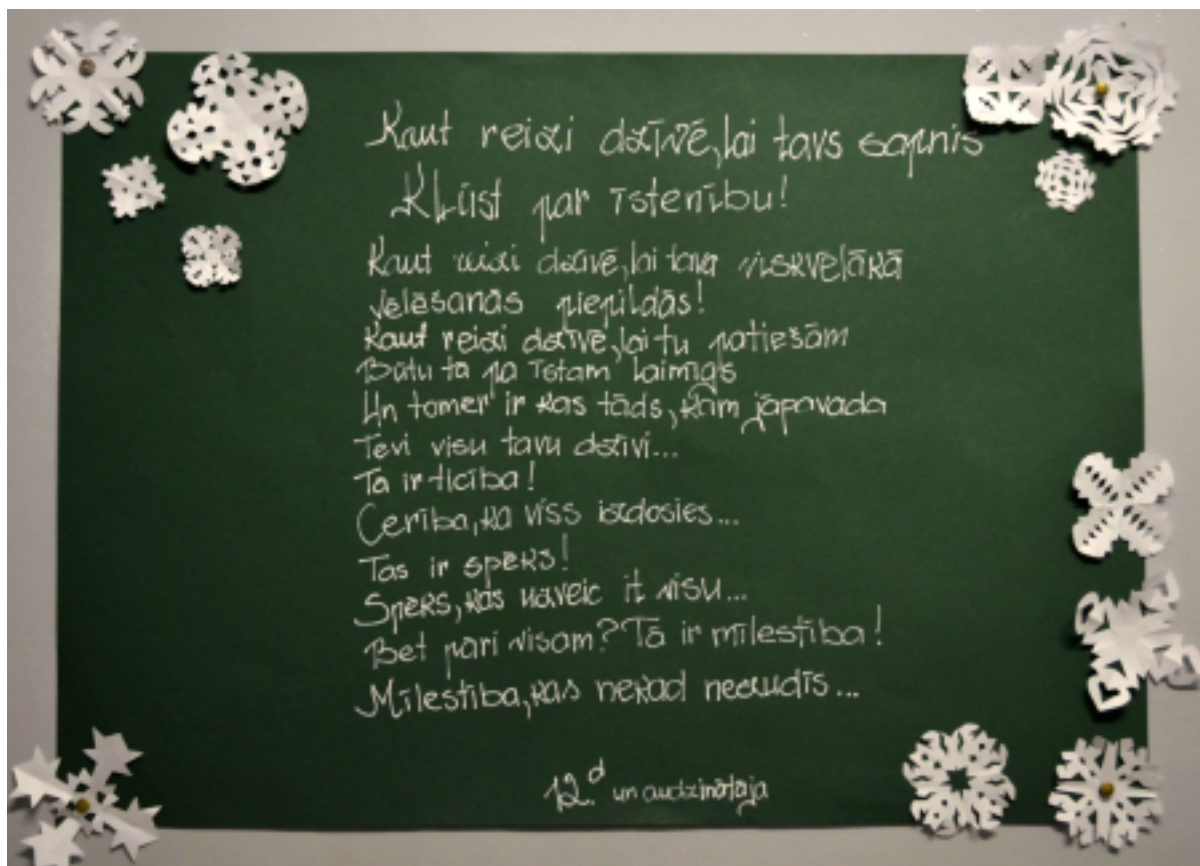 Kaut reizi dzīvē, lai tavs sapnis
Kļūst par īstenību!
Kaut reizi dzīvē, lai tava viskvēlākā
vēlēšanās piepildās!
Kaut reizi dzīvē, lai tu patiešām
Būtu tā pa īstam laimīgs
Un tomēr ir kas tāds, kam jāpavada
Tevi visu tavu dzīvi...
Tā ir ticība!
Cerība, ka viss izdosies...
Tas ir spēks!
Spēks, kas uzveic it visu...
Bet pāri visam? Tā ir mīlestība!
Mīlestība, kas nekad nezudīs...
12.d un audzinātāja